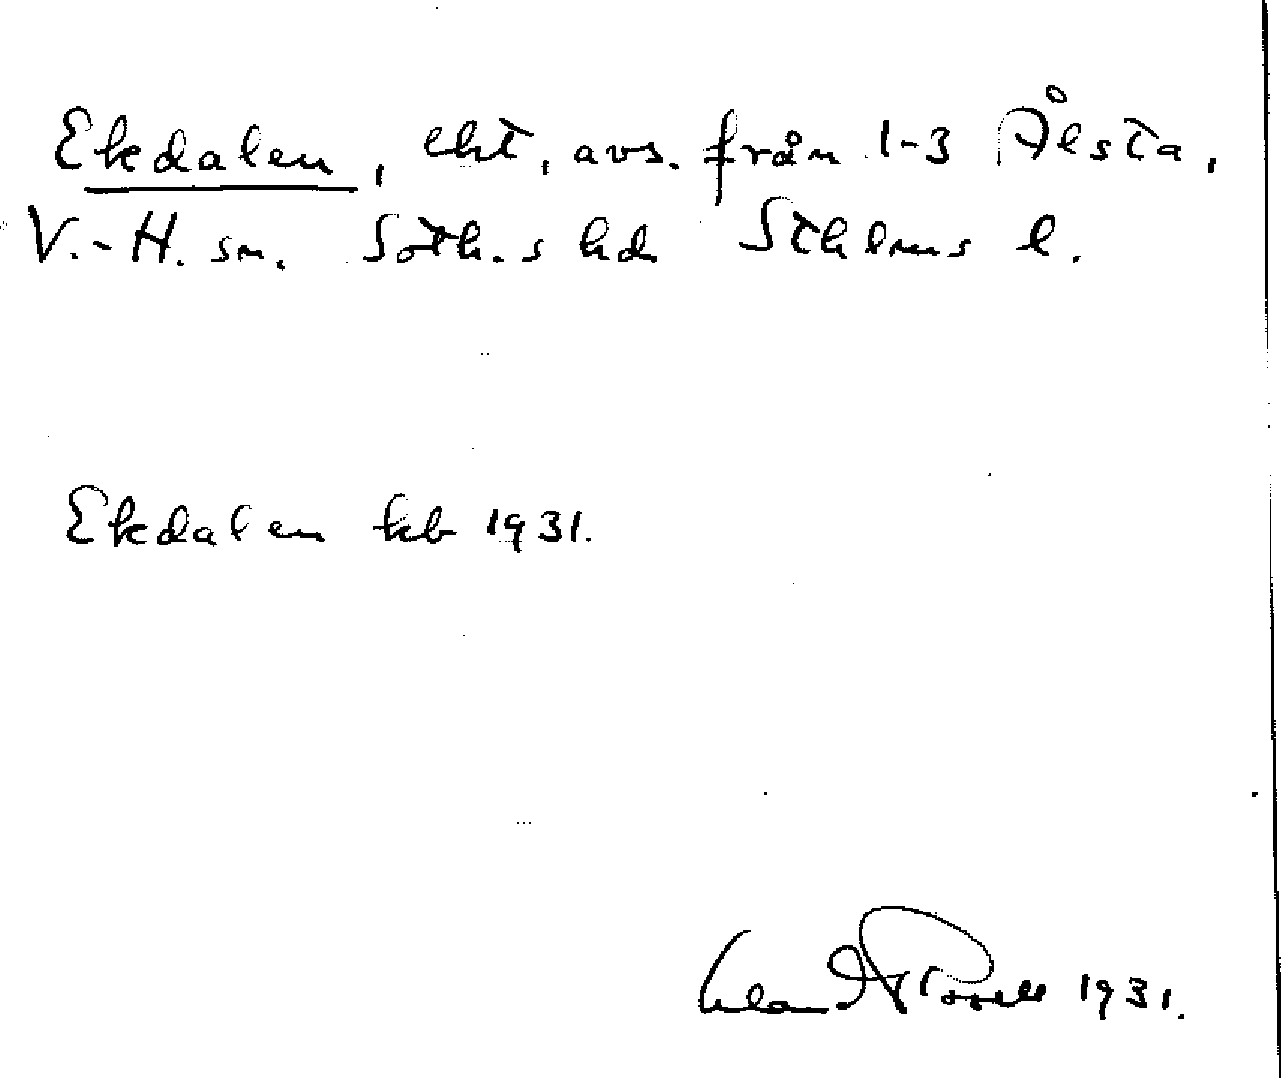 Ekdalen, lht, avs. från 1-3 Ålsta,
V.-H. sn. Soth.s hd Sthlms l.
Ekdalen kb 1931.
1931.